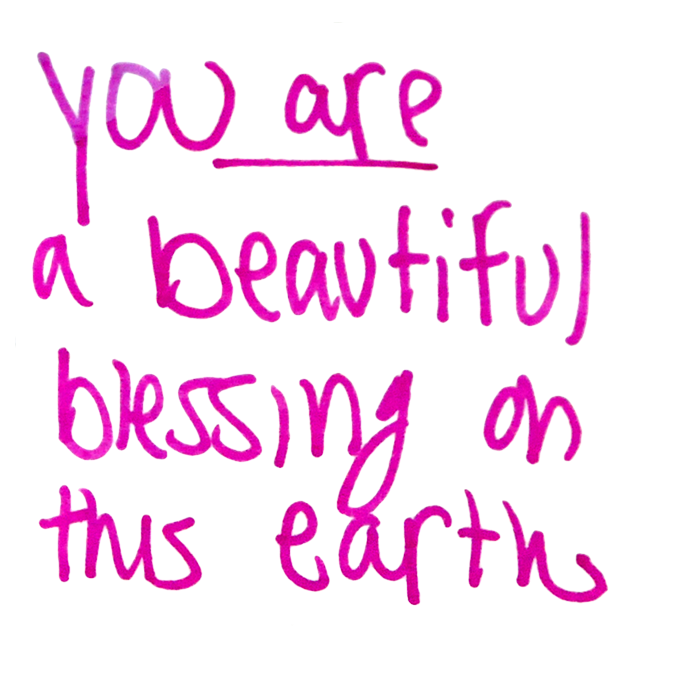 you are
a beautiful
blessing on
this earth